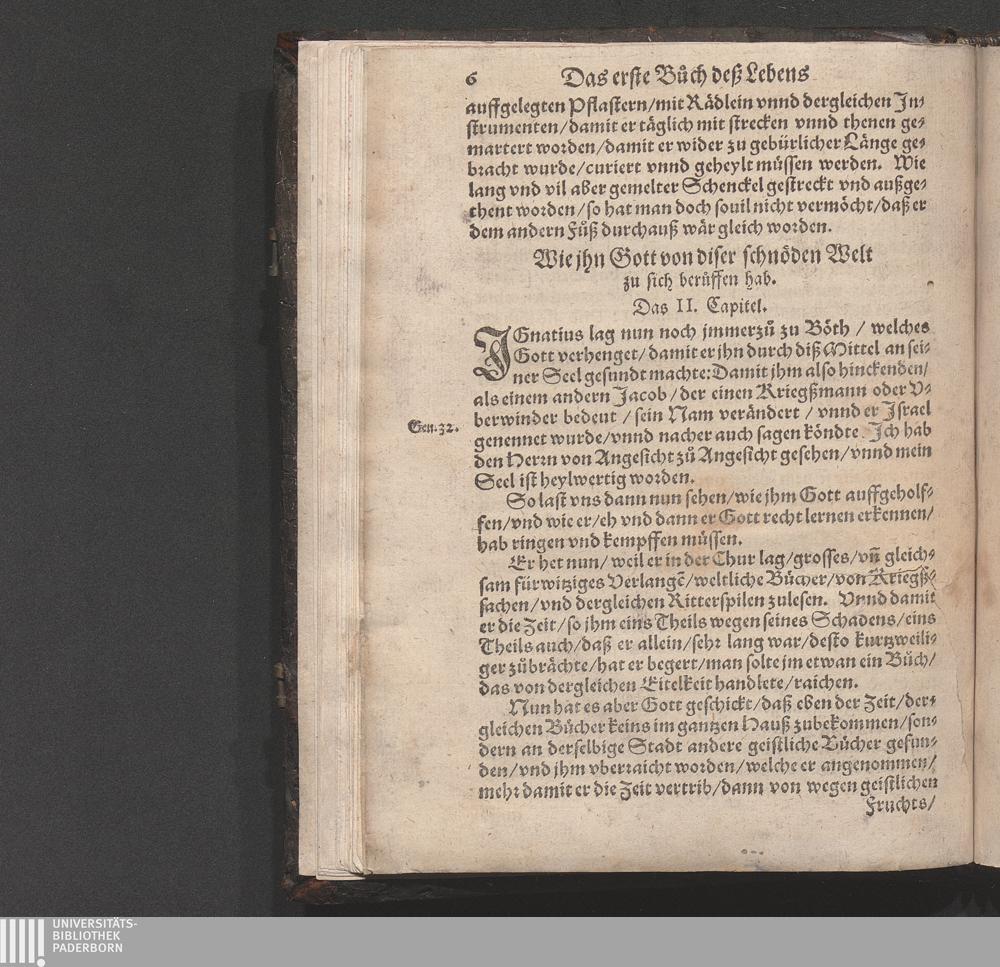 6 Das erste Bůch deß Lebens
auffgelegten Pflastern/mit Rädlein vnnd dergleichen In-
strumenten/damit er täglich mit strecken vnnd thenen ge-
martert worden/damit er wider zu gebürlicher Länge ge-
bracht wurde/curiert vnnd geheylt müssen werden. Wie
lang vnd vil aber gemelter Schenckel gestreckt vnd außge-
thent worden/so hat man doch souil nicht vermöcht/daß er
dem andern Fůß durchauß wär gleich worden.
Wie jhn Gott von diser schnöden Welt
zu sich berüffen hab.
Das II. Capitel.
IGnatius lag nun noch jmmerzů zu Böth / welches
Gott verhenget/damit er jhn durch diß Mittel an sei-
ner Seel gesundt machte: Damit jhm also hinckenden/
als einem andern Jacob/der einen Kriegßmann oder V-
berwinder bedeut / sein Nam verändert / vnnd er Israel
Gen. 32.
genennet wurde/vnnd nacher auch sagen köndte. Ich hab
den Herrn von Angesicht zů Angesicht gesehen/vnnd mein
Seel ist heylwertig worden.
So last vns dann nun sehen/wie jhm Gott auffgeholf-
fen/vnd wie er/eh vnd dann er Gott recht lernen erkennen/
hab ringen vnd kempffen müssen.
Er het nun/weil er in der Chur lag/grosses/vn̄ gleich-
sam fürwitziges Verlangē/weltliche Bücher/von Kriegß-
sachen/vnd dergleichen Ritterspilen zulesen. Vnnd damit
er die Zeit/so jhm eins Theils wegen seines Schadens/eins
Theils auch/daß er allein/sehr lang war/desto kurtzweili-
ger zůbrächte/hat er begert/man solte jm etwan ein Bůch/
das von dergleichen Eitelkeit handlete/raichen.
Nun hat es aber Gott geschickt/daß eben der Zeit/der-
gleichen Bücher keins im gantzen Hauß zubekommen/son-
dern an derselbige Stadt andere geistliche Bücher gefun-
den/vnd jhm vberraicht worden/welche er angenommen/
mehr damit er die Zeit vertrib/dann von wegen geistlichen
Fruchts/
UNIVERSITÄTS-
BIBLIOTHEK
PADERBORN